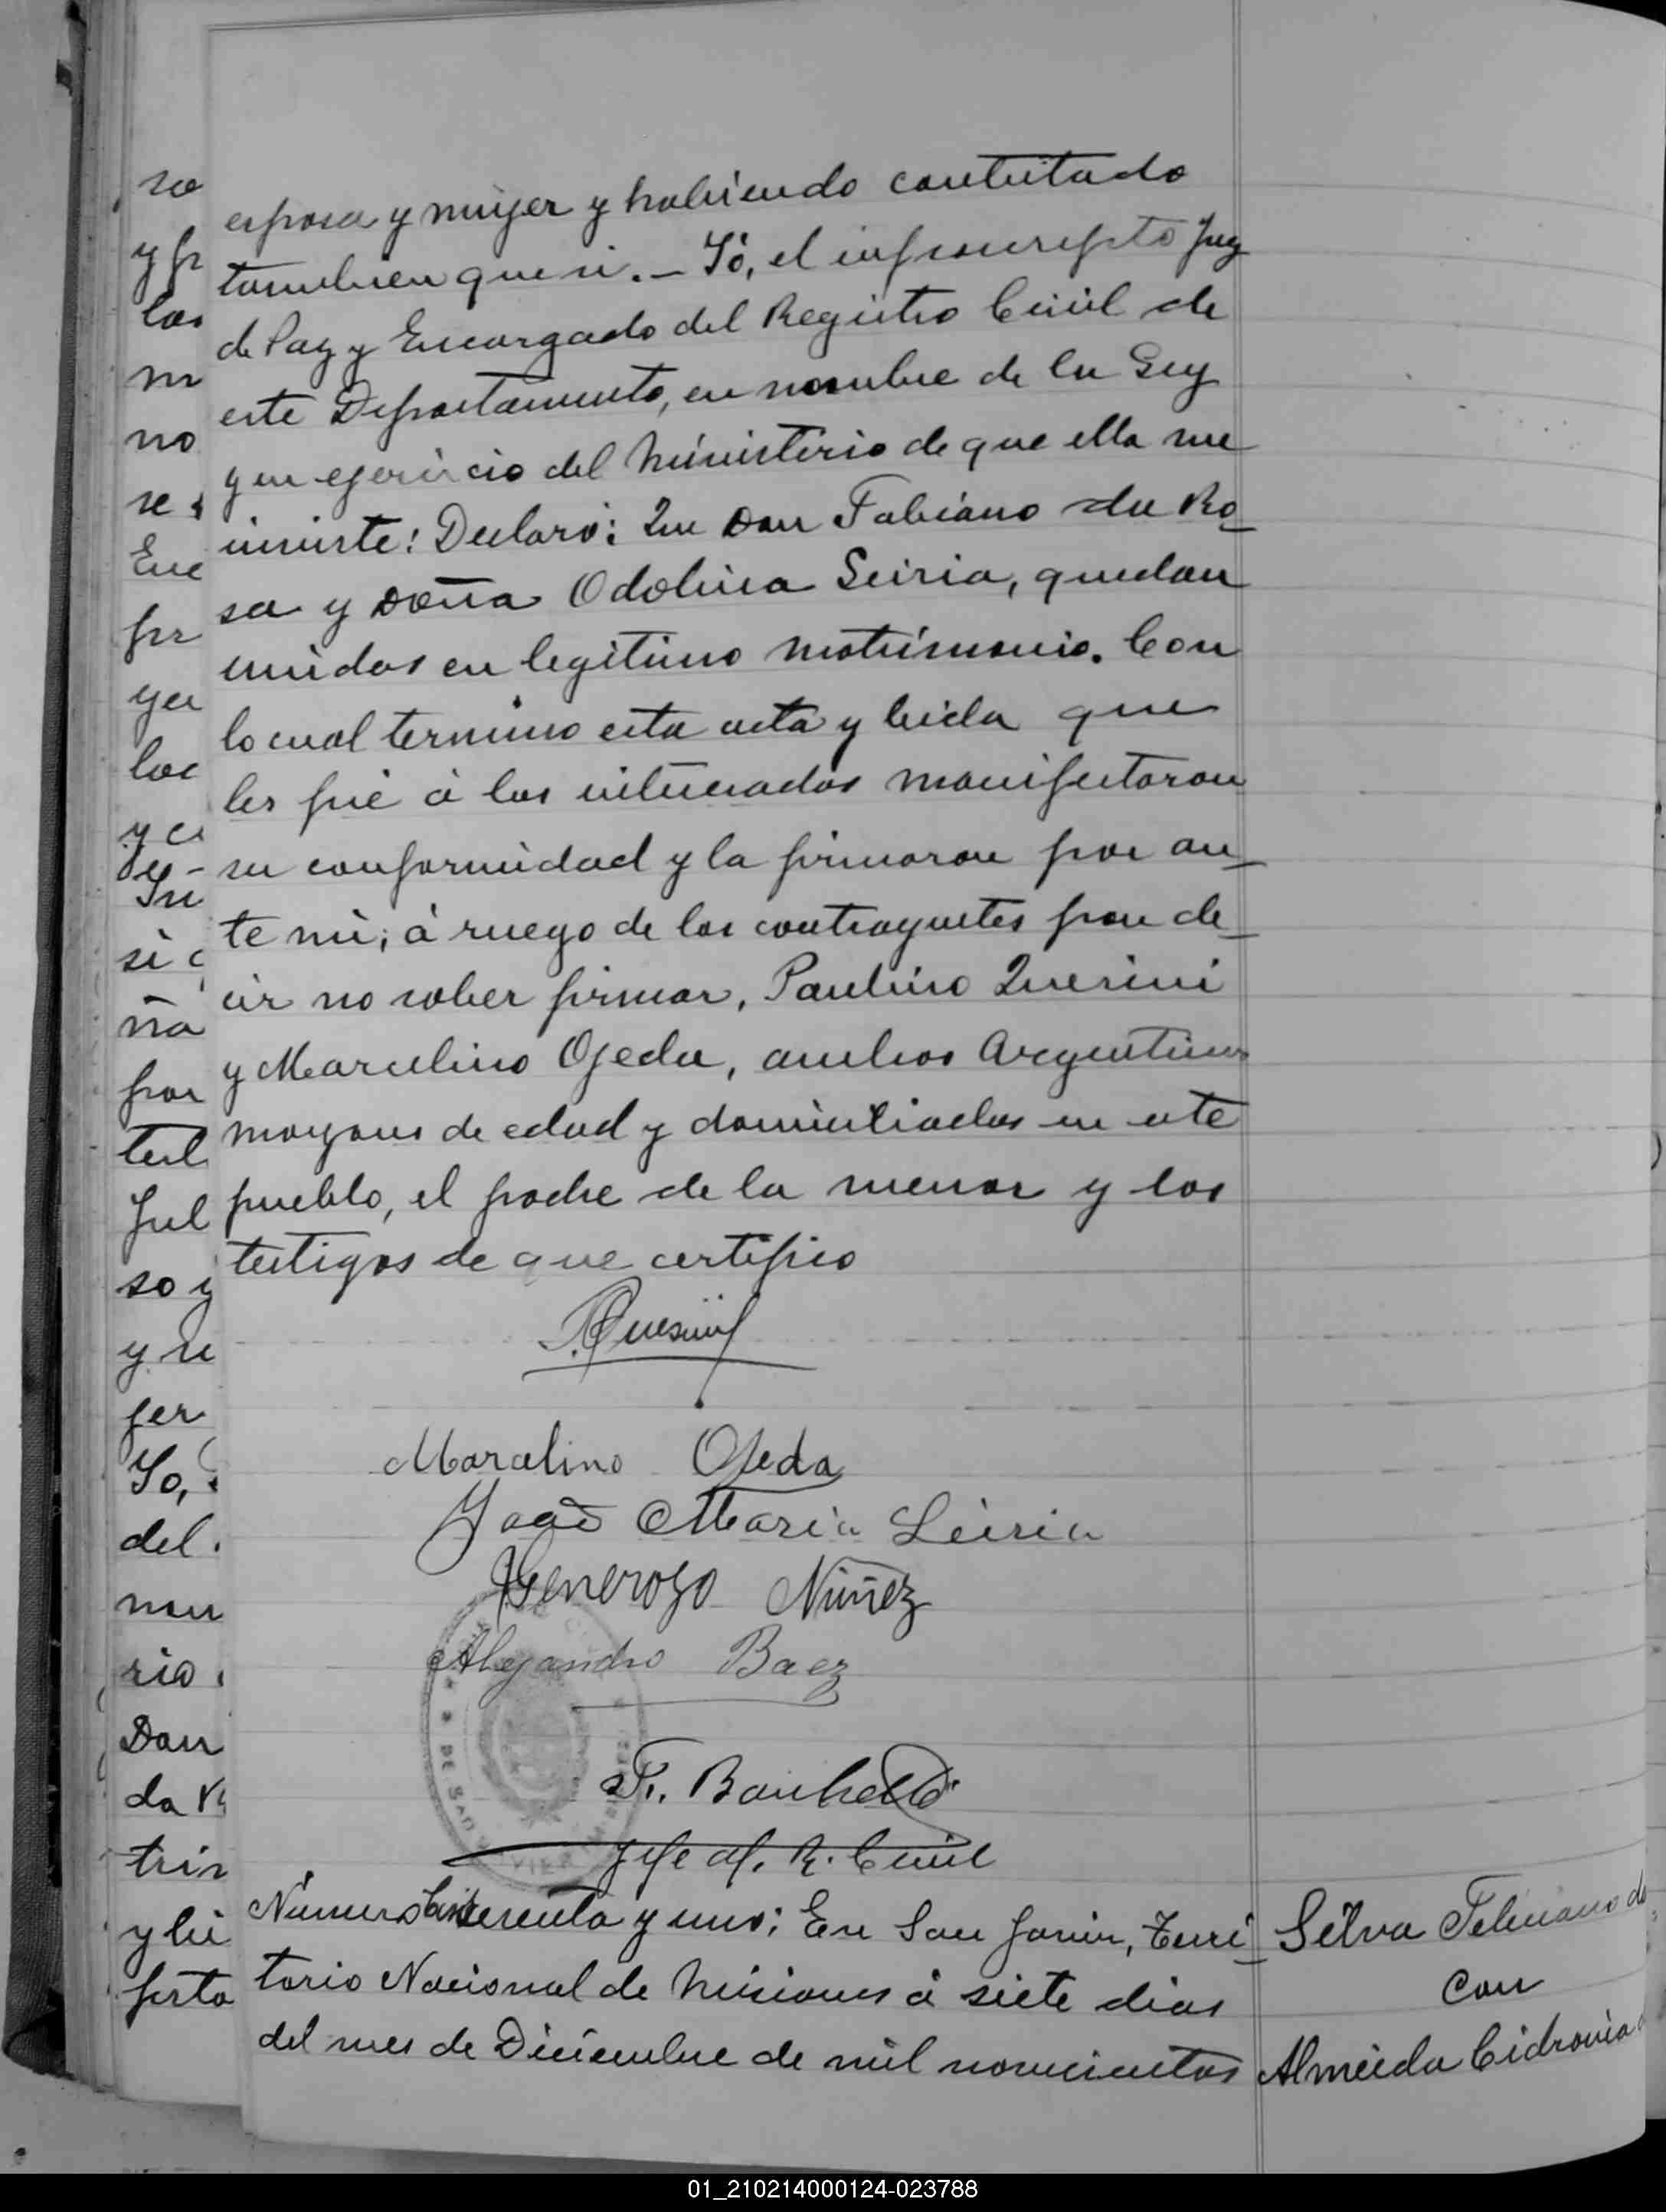 esposa y mujer y habiendo contestado
tambien que si. — Yó, el infrascripto Juez
de Paz y Encargado del Registro Civil de
este Departamento, en nombre de la Ley
y en ejericio del Ministerio de que ella me
inviste: Declaro: Que Don Fabiano da Ro_
sa y Doña Odolina Leiria, quedan
unidos en legitimo matrimonio. Con
lo cual termino esta acta y leida que
les fué á los interesados manifestaron
su conformidad y la firmaron por an_
te mi; á ruego de los contrayentes por de_
cir no saber firmar, Paulino Querini
y Marcelino Ojeda, ambos Argentinos
mayores de edad y domiciliados en este
pueblo, el padre de la menor y los
testigos de que certifico
Marcelino Ojeda
Joaõ Maria Leiria
Generozo Núñez
Alejandro Baez
Jefe del R. Civil
Número y uno: En San Javier, Terri_
torio Nacional de Misiones á siete dias
del mes de Diciembre de mil novecientos
Silva Feliciano da
con
Almeida Cidronia
so
y pr
los
m
no
se
Enc
pr
ya
loc
y ci
si
ña
por
test
Jul
so y
y se
jer
Yo,
del
nom
rio
Don
da
trim
y lei
festa
01_210214000124-023788